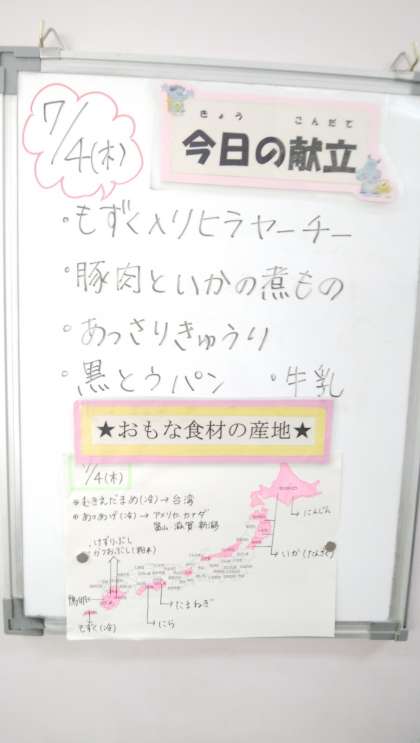 7/4(木)
きょう こんだて
今日の献立
・もずく入りヒラヤーチー
・豚肉といかの煮もの
・あっさりきゅうり
・黒とうパン ・牛乳
★おもな食材の産地★
7/4(木)
*むきえだまめ(冷)→台湾
*あつあげ(冷)→アメリカ カナダ
富山 滋賀 新潟
けずりぶし
かつおぶし(粉末)
にんじん
いか(たんざく)
たまねぎ
にら
もずく(冷)